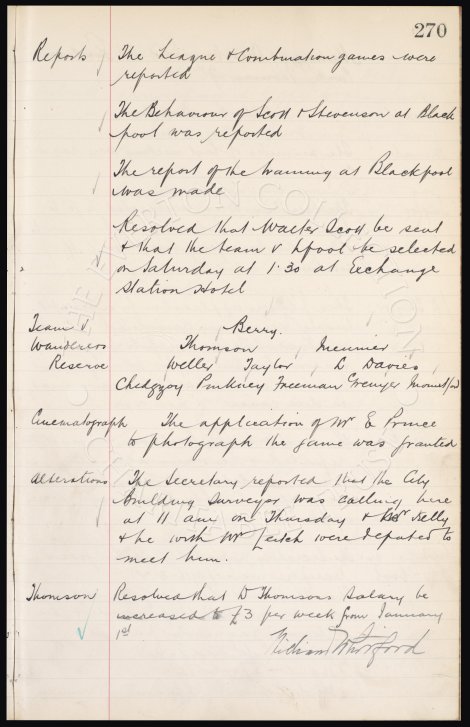 270
Reports The League & Combination games were
reported
The Behaviour of Scott & Stevenson at Black
pool was reported
The report of the training at Blackpool
was made
Resolved that Walter Scott be sent
& that the team v L'pool be selected
on Saturday at 1.30 at Exchange
Station Hotel
Team v Berry.
Wanderers Thomson Meunier
Reserve Weller Taylor L Davies
Chedgzoy Pinkney Freeman Grenyer Mountford
Cinematograph The application of Mr E Prince
to photograph the game was granted
Alterations The Secretary reported that the City
Building Surveyor was calling here
at 11 am on Thursday & Mr Kelly
& he with Mr Leitch were deputed to
meet him.
Thomson Resolved that D Thomsons salary be
increased to £3 per week from January
1st
William Whitford